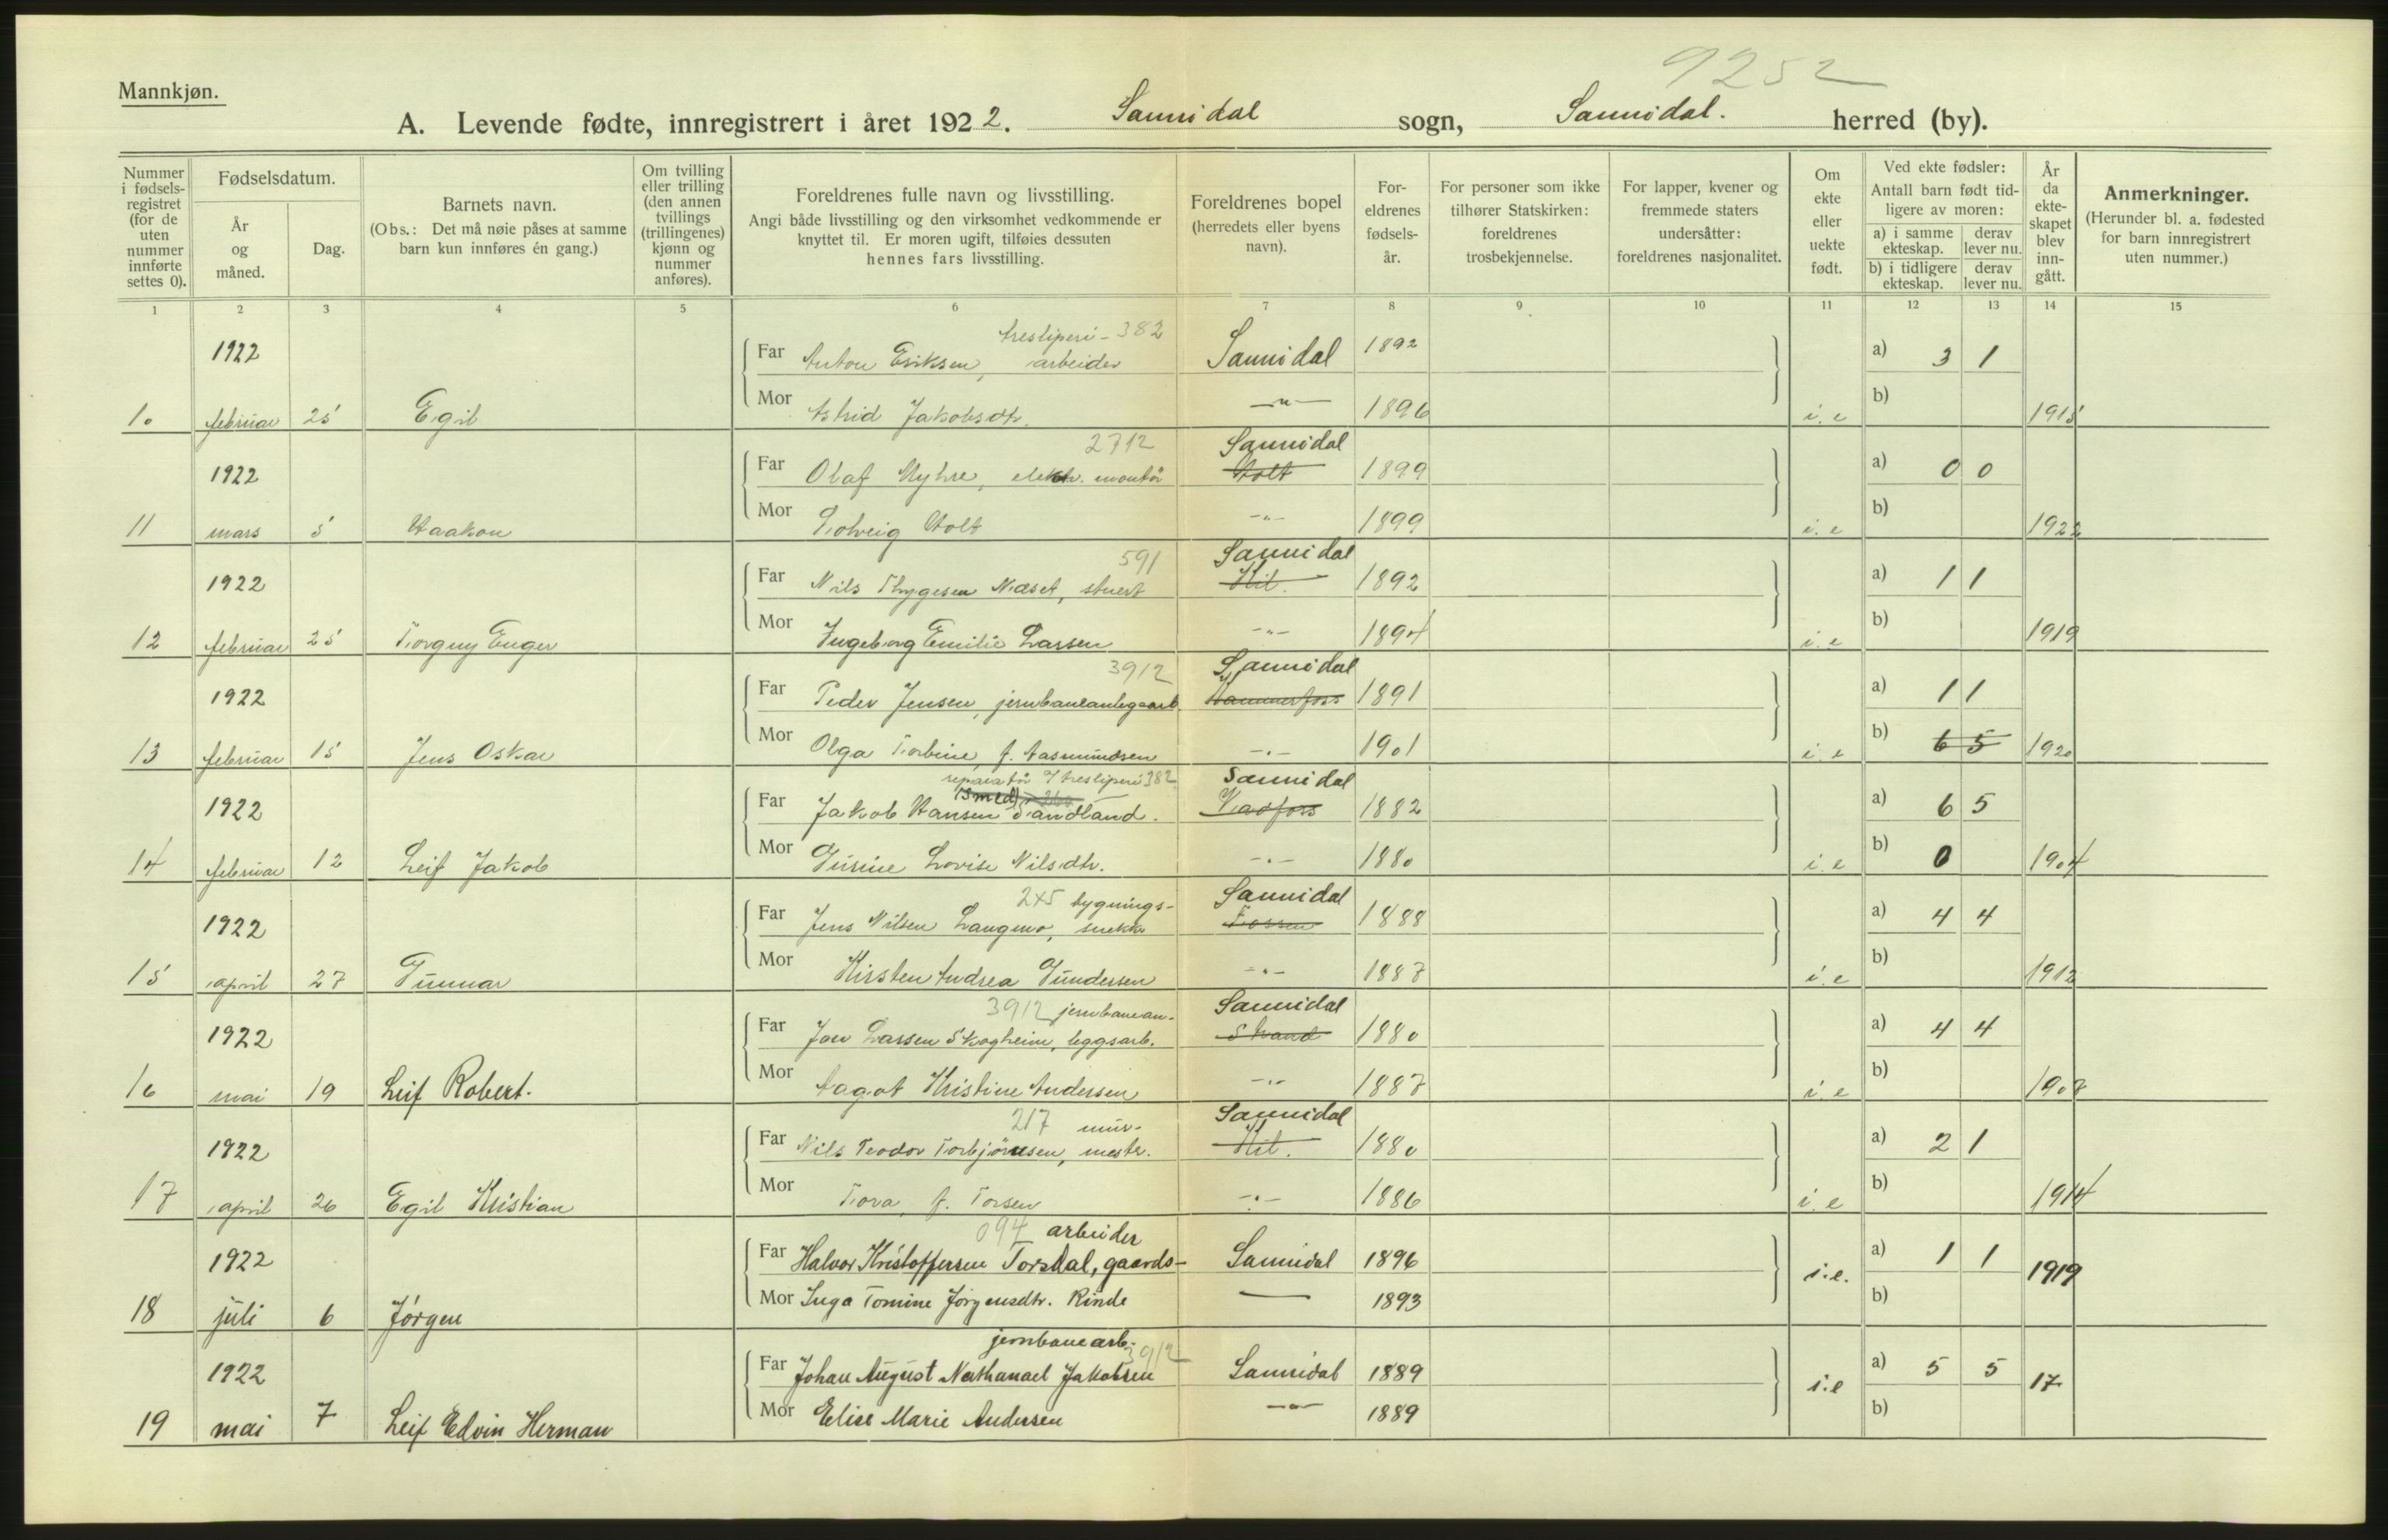 9252
Mannkjøn.
A. Levende fødte, innregistrert i året 1922. Sannidal sogn, Sannidal. herred (by).
Nummer i fødsels-registret (for de uten nummer innførte settes 0).
Fødselsdatum.
År og måned.
Dag.
Barnets navn.
(Obs.: Det må nøie påses at samme barn kun innføres én gang.)
Om tvilling eller trilling (den annen tvillings (trillingenes) kjønn og nummer anføres).
Foreldrenes fulle navn og livsstilling.
Angi både livsstilling og den virksomhet vedkommende er knyttet til. Er moren ugift, tilføies dessuten hennes fars livsstilling.
Foreldrenes bopel (herredets eller byens navn).
For-eldrenes fødsels-år.
For personer som ikke tilhører Statskirken: foreldrenes trosbekjennelse.
For lapper, kvener og fremmede staters undersåtter: foreldrenes nasjonalitet.
Om ekte eller uekte født.
Ved ekte fødsler:
Antall barn født tid-ligere av moren:
a) i samme ekteskap. derav lever nu.
b) i tidligere ekteskap. derav lever nu.
År da ekte-skapet blev inn-gått.
Anmerkninger.
(Herunder bl. a. fødested for barn innregistrert uten nummer.)
1 2 3 4 5 6 7 8 9 10 11 12 13 14 15
tresliperi- 382
1922 Far Anton Eriksen, arbeider Sannidal 1892 a) 3 1
10 februar 25 Egil Mor Astrid Jakobsdtr. —"— 1896 i.e b) 1915
2712 Sannidal
1922 Far Olaf Myhre, elektr. montør Holt 1899 a) 0 0
11 mars 5 Haakon Mor Solveig Holt —"— 1899 i.e b) 1922
591 Sannidal
1922 Far Nils Thygesen Næset, stuert Kil. 1892 a) 1 1
12 februar 25 Torguy Enger Mor Ingeborg Emilie Larsen —"— 1894 i.e b) 1919
3912 Sannidal
1922 Far Peder Jensen, jernbaneanlegsarb. Hammerfoss 1891 a) 1 1
13 februar 15 Jens Oskar Mor Olga Torbine f. Aasmundsen —"— 1901 i.e b) 6 5 1920
reparatør v/ tresliperi 382 Sannidal
(Smed)
1922 Far Jakob Hansen Sandland. Vadfoss 1882 a) 6 5
14 februar 12 Leif Jakob Mor Gurine Lovise Nilsdtr. —"— 1880 i.e b) 0 1904
245 bygnings- Sannidal
1922 Far Jens Nilsen Langmo, snekk Fossen 1888 a) 4 4
15 april 27 Gunnar Mor Kirsten Andrea Gundersen —"— 1887 i.e b) 1912
3912 jernbanean- Sannidal
1922 Far Jon Larsen Skogheim, leggsarb. Strand 1880 a) 4 4
16 mai 19 Leif Robert. Mor Aagot Kristine Andersen —"— 1887 i.e b) 1907
217 mur- Sannidal
1922 Far Nils Teodor Torbjørnsen, mester. Kil. 1880 a) 2 1
17 april 26 Egil Kristian Mor Tora, f. Torsen —"— 1886 i.e b) 1914
094 arbeider
1922 Far Halvor Kristoffersen Torsdal, gaards- Sannidal 1896 a) 1 1
18 juli 6 Jørgen Mor Inga Tomine Jørgensdtr. Rinde — 1893 i.e. b) 1919
jernbanearb. 3912
1922 Far Johan August Nathanael Jakobsen Sannidal 1889 a) 5 5
19 mai 7 Leif Edvin Herman Mor Elise Marie Andersen —"— 1889 i.e b) 17